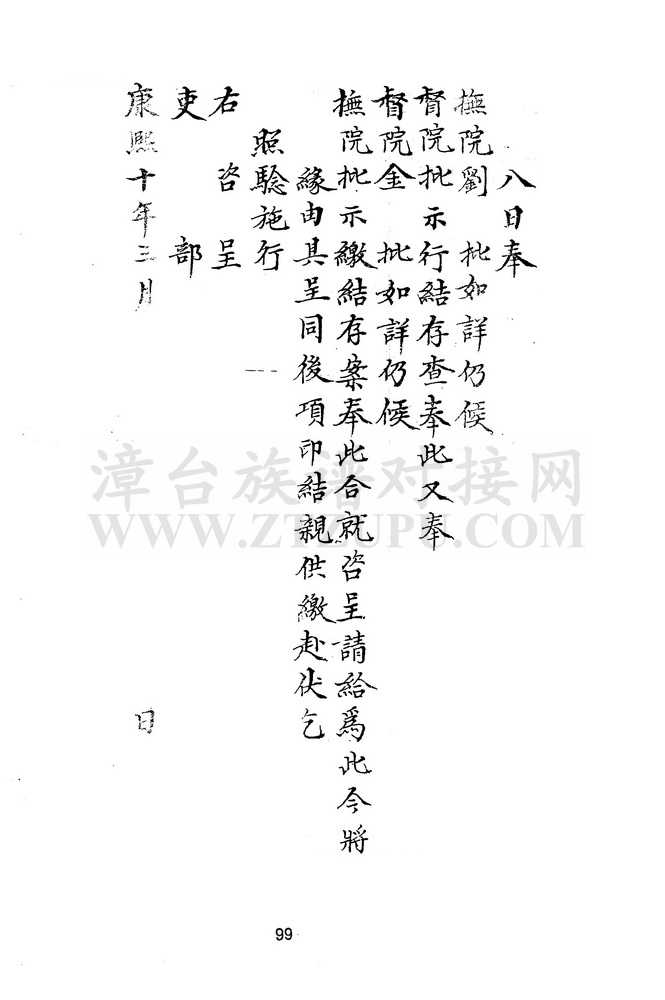 八日奉
撫院劉　批如詳仍候
督院批示行結存查奉此又奉
督院金　批如詳仍候
撫院批示繳結存案奉此合就咨呈請給爲此今將
緣由具呈同後項印結親供繳赴伏乞
照驗施行
右咨呈
吏部
康熙十年三月　日
漳台族谱对接网
WWW.ZTZUPU.COM
99